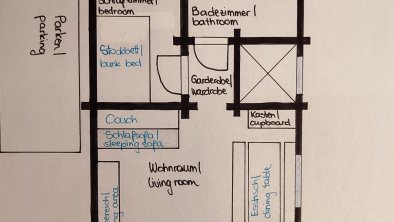 Parken/
parking
Schlafzimmer/
bedroom
Badezimmer/
bathroom
Stockbett/
bunk bed
Garderobe/
wardrobe
Couch
Schlafsofa/
sleeping sofa
Kasten/
cupboard
Wohnraum/
living room
Esstisch/
dining table
area